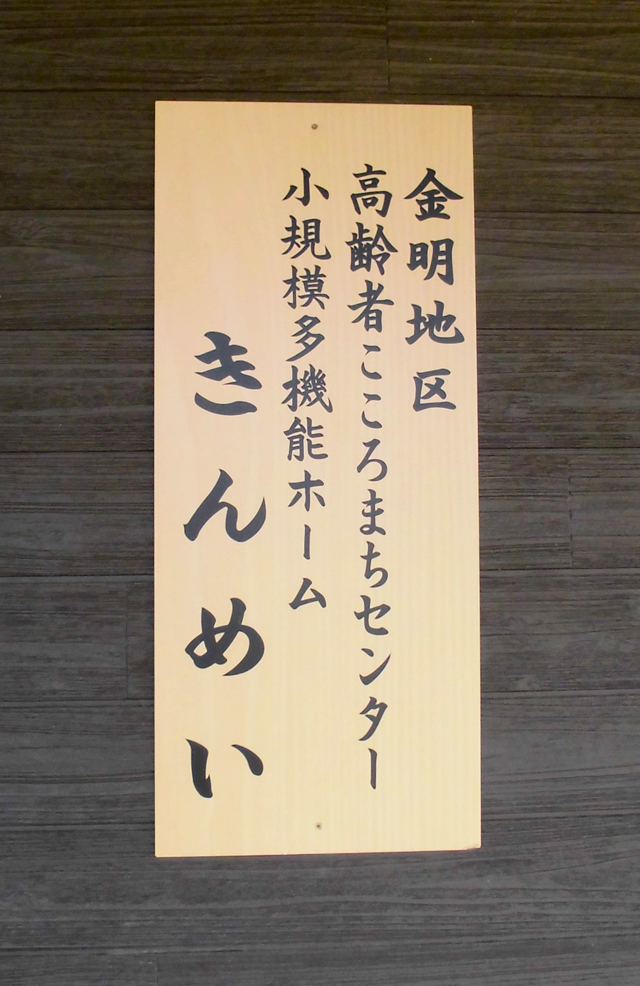 金明地区
高齢者こころまちセンター
小規模多機能ホーム
きんめい